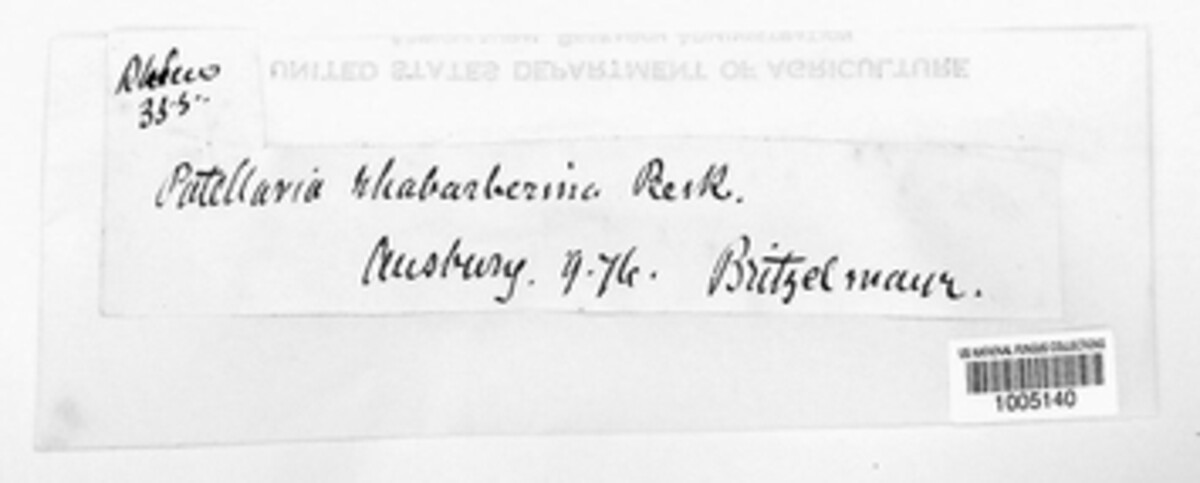 UNITED STATES DEPARTMENT OF AGRICULTURE
35.5.
Patellaria rhabarberina Rerk.
Ausburg. 9.76. Britzelmayr.
US NATIONAL FUNGUS COLLECTIONS
1005140